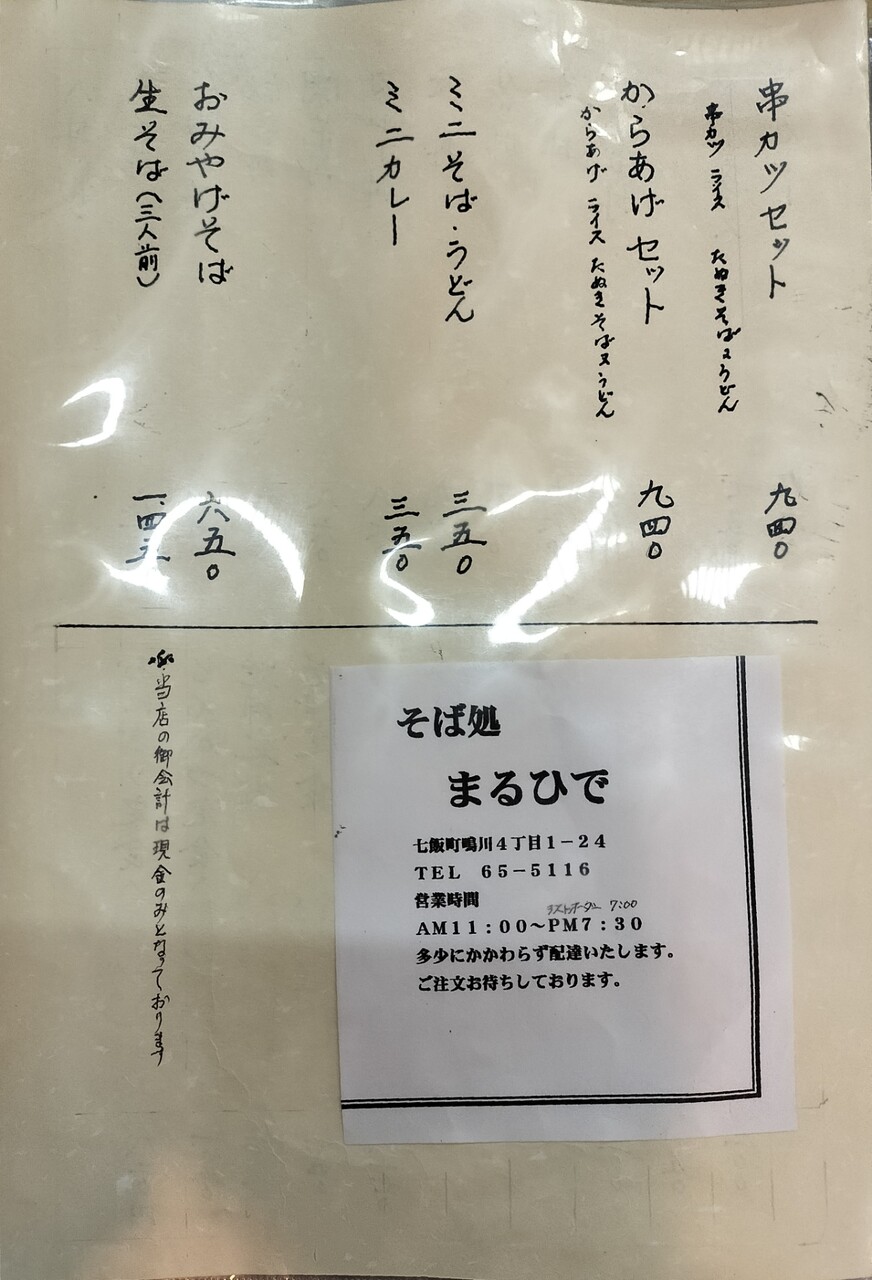 串カツセット
九四〇
串カツ ライス たぬきそば又うどん
からあげセット
九四〇
からあげ ライス たぬきそば又うどん
ミニそば・うどん
三五〇
ミニカレー
三五〇
おみやげそば
六五〇
生そば(三人前)
当店の御会計は現金のみとなっております
そば処
まるひで
七飯町鳴川4丁目1-24
TEL 65-5116
営業時間
ラストオーダー 7:00
AM11:00~PM7:30
多少にかかわらず配達いたします。
ご注文お待ちしております。